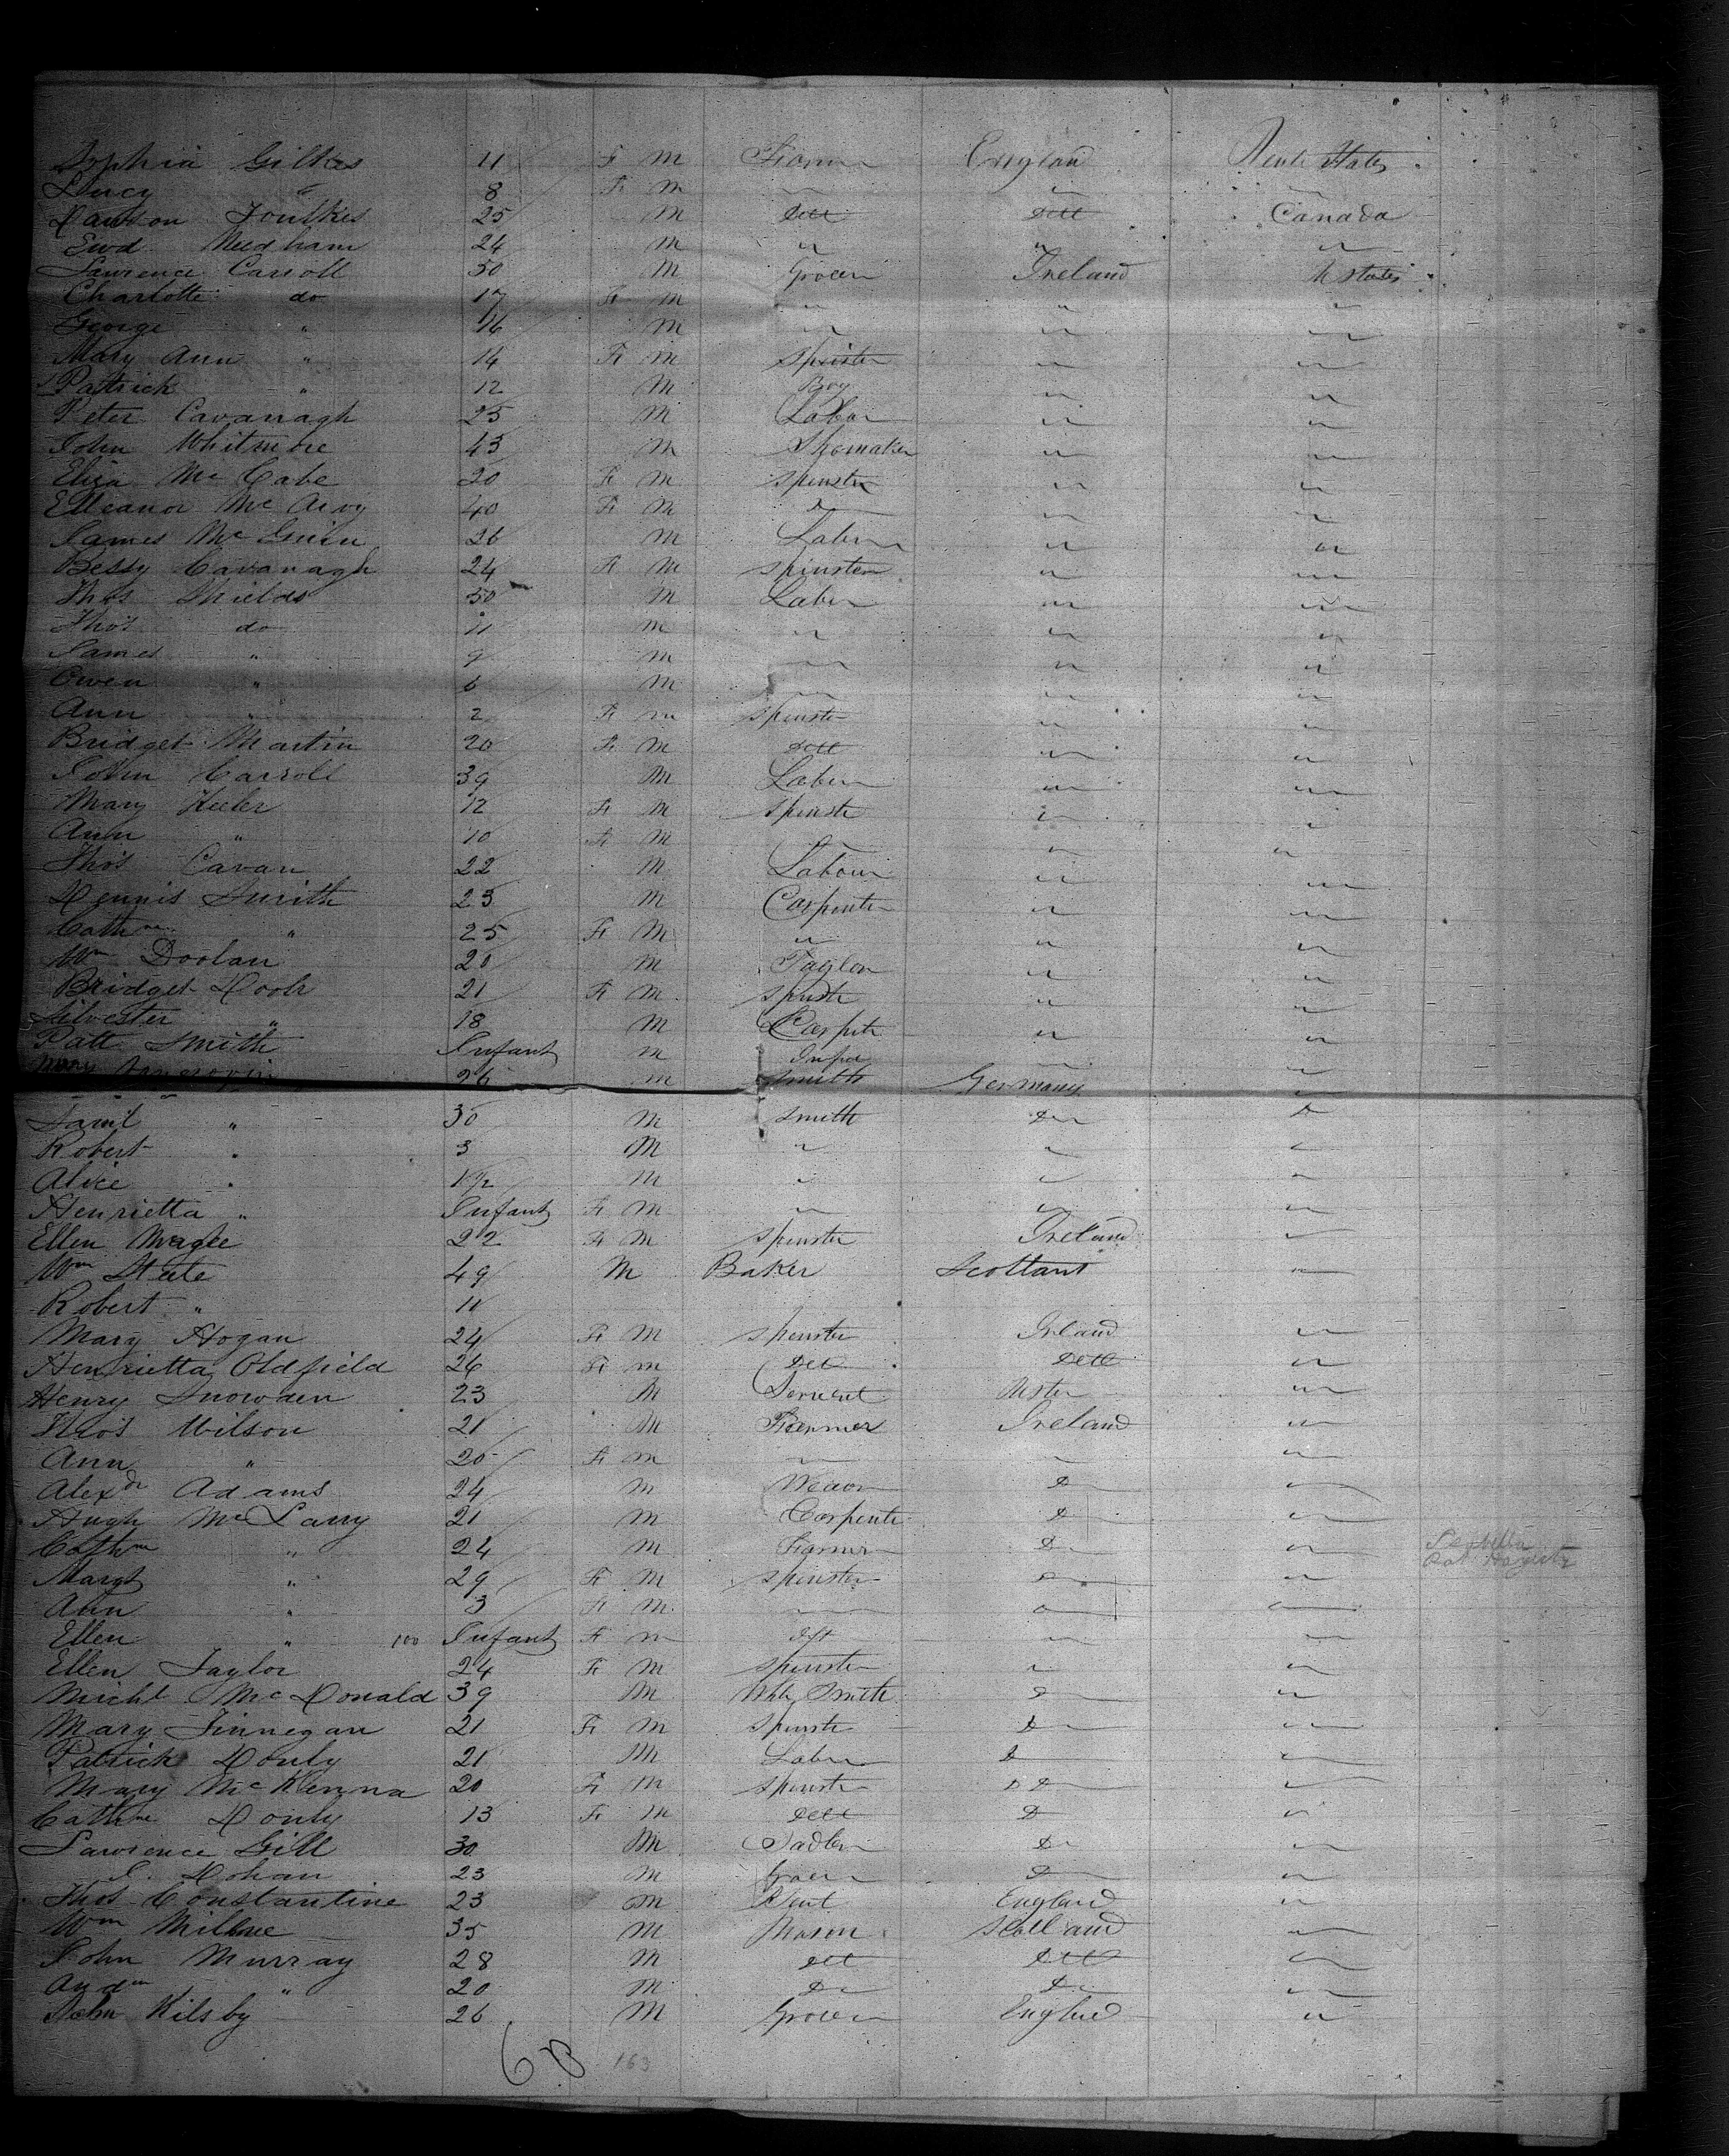 Sophia Gilkes 11 Fe M Farmer England Unite States
Lucy " 8 Fe M " " "
Dawson Foulkes 25 M ditt ditt Canada
Ewd Needham 24 M " " "
Lawrence Carroll 50 M Grocer Ireland U States
Charlotte do 17 Fe M " " "
George " 16 M " " "
Mary Ann " 14 Fe M Spinster " "
Patrick " 12 M Boy " "
Peter Cavanagh 25 M Labor " "
John Whitmore 43 M Shomaker " "
Eliza Mc Cabe 20 Fe M Spinster " "
Elleanor Mc Avoy 40 Fe M " " "
James Mc Guin 26 M Laber " "
Bessy Cavanagh 24 Fe M Spinster " "
Thos Shields 50 M Laber " "
Thos do 11 M " " "
James " 9 M " " "
Owen " 6 M " " "
Ann " 2 Fe M Spinster " "
Bridget Martin 20 Fe M ditt " "
John Carroll 39 M Laber " "
Mary Keeler 12 Fe M Spinste " "
Ann " 10 Fe M " " "
Thos Cavan 22 M Labour " "
Dennis Smith 23 M Carpenter " "
Cathne " 25 Fe M " " "
Wm Doolan 20 M Taylor " "
Bridget 21 Fe M Spinste " "
Silvester " 18 M Carpte " "
Patt Smith Infant M Infa " "
Mary 26 M Smith Germany "
Saml " 30 M Smith Do Do
Robert " 3 M " " "
Alice " 1 1/2 M " " "
Henrietta " Infant Fe M " " "
Ellen Magee 22 Fe M Spinster Ireland "
Wm State 49 M Baker Scotland "
Robert " 11
Mary Hogan 24 Fe M Spinster Irland "
Henrietta Oldfield 26 Fe M ditt ditt "
Henry Snowden 23 M Servent "
Thos Wilson 21 M Farmer Ireland "
Ann " 20 Fe M " " "
Alexdr Adams 24 M Weaver Do "
Hugh Mc Larry 21 M Carpente Do "
Cathne " 24 M Farmer Do "
Margt " 29 Fe M Spinster Do "
Ann " 3 Fe M " " "
Ellen " 100 Infant Fe M " "
Ellen Taylor 24 Fe M Spinster " "
Michl Mc Donald 39 M Wht Smith Do "
Mary Finnegan 21 Fe M Spinste Do "
Patrick Donly 21 M Laber Do "
Mary Mc Kenna 20 Fe M Spinste Do "
Cathne Donly 13 Fe M ditt Do "
Lawrence Gill 30 M Sadler Do "
J. Dohan 23 M Grocer Do "
Thos Constantine 23 M England "
Wm Millne 35 M Mason Scotland "
John Murray 28 M ditt ditt "
Andw " 20 M Do Do "
John Kilsby 26 M Grocer Englnd "
163